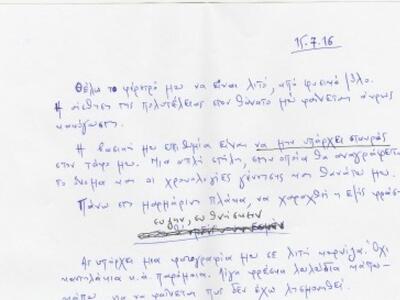 15.7.16
Θέλω το φέρετρό μου να είναι λιτό, από φυσικό ξύλο.
Η αίσθηση της πολυτέλειας στον θάνατο μού φαίνεται άκρως
κακόγουστη.
Η βασική μου επιθυμία είναι να μην υπάρχει σταυρός
στον τάφο μου. Μια απλή στήλη, στην οποία θα αναγράφεται
το όνομα και οι χρονολογίες γέννησης και θανάτου μου.
Πάνω στη μαρμάρινη πλάκα, να χαραχθή η εξής φράση
ευ ζην, ευ θνήσκειν
Ας υπάρχει μια φωτογραφία μου σε λιτή κορνίζα. Όχι
καντηλάκια κ.ά. παρόμοια. Λίγα φρέσκα λουλούδια κάπου-
κάπου για να φαίνεται πως δεν έχω λησμονηθεί.